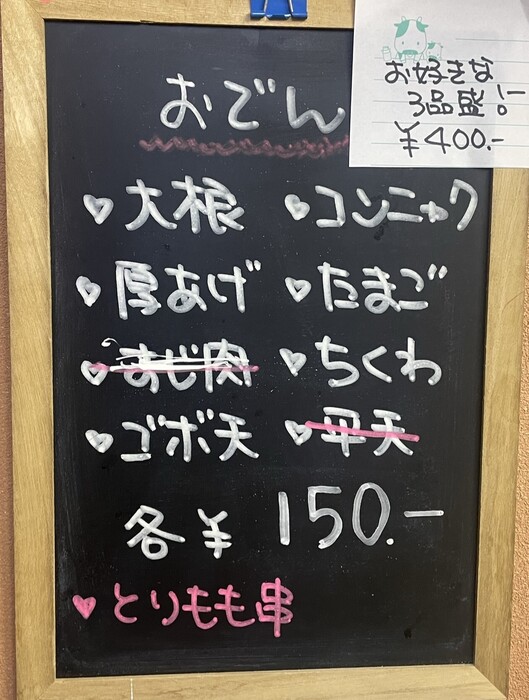 お好きな
3品盛!!
¥400.-
おでん
♥大根 ♥コンニャク
♥厚あげ ♥たまご
♥すじ肉 ♥ちくわ
♥ゴボ天 ♥平天
各¥150.-
♥とりもも串